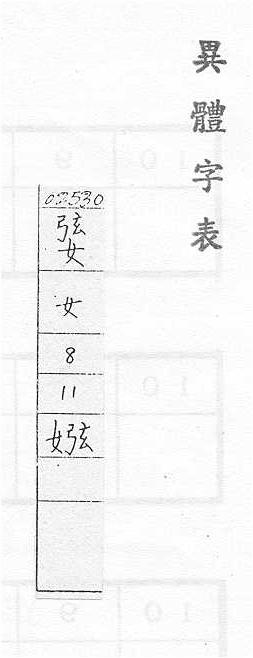 異體字表
03530
⿱弦女
女
8
11
娹